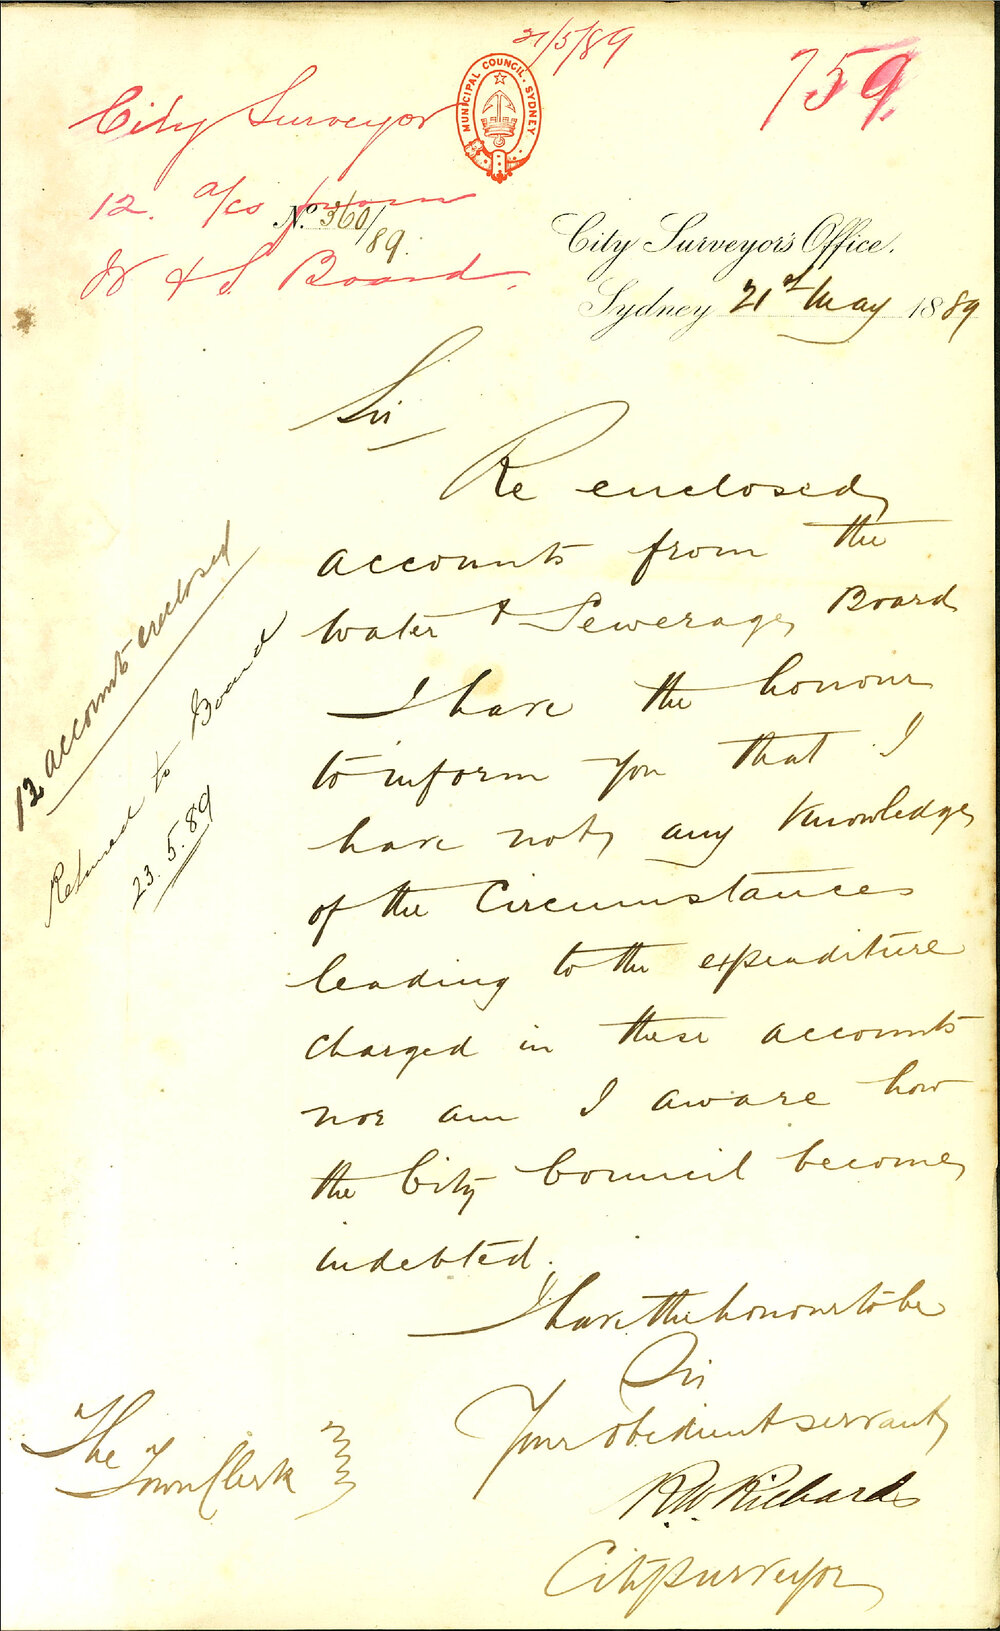 21/5/89
759.
City Surveyor
12. a/cs from
W & S. Board.
MUNICIPAL COUNCIL. SYDNEY
No. 360/89.
City Surveyor's Office.
Sydney 21st May 1889
Sir
Re enclosed
accounts from the
Water & Sewerage Board
I have the honour
to inform you that I
have not any knowledge
of the Circumstances
leading to the expenditure
charged in these accounts
nor am I aware how
the City Council become
indebted.
I have the honour to be
Sir
Your obedient servant
R.W. Richards
City Surveyor
The
Town Clerk
12 accounts enclosed
Returned to Board
23.5.89